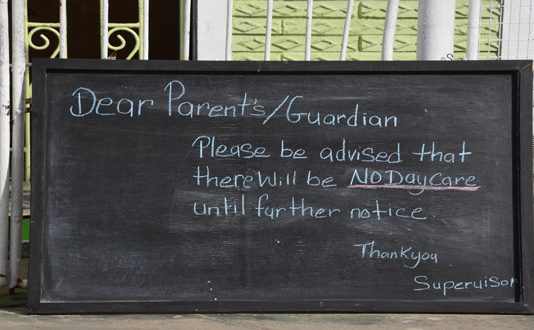 Dear Parent's/Guardian
Please be advised that
there will be NO Daycare
until further notice
Thank you
Supervisor